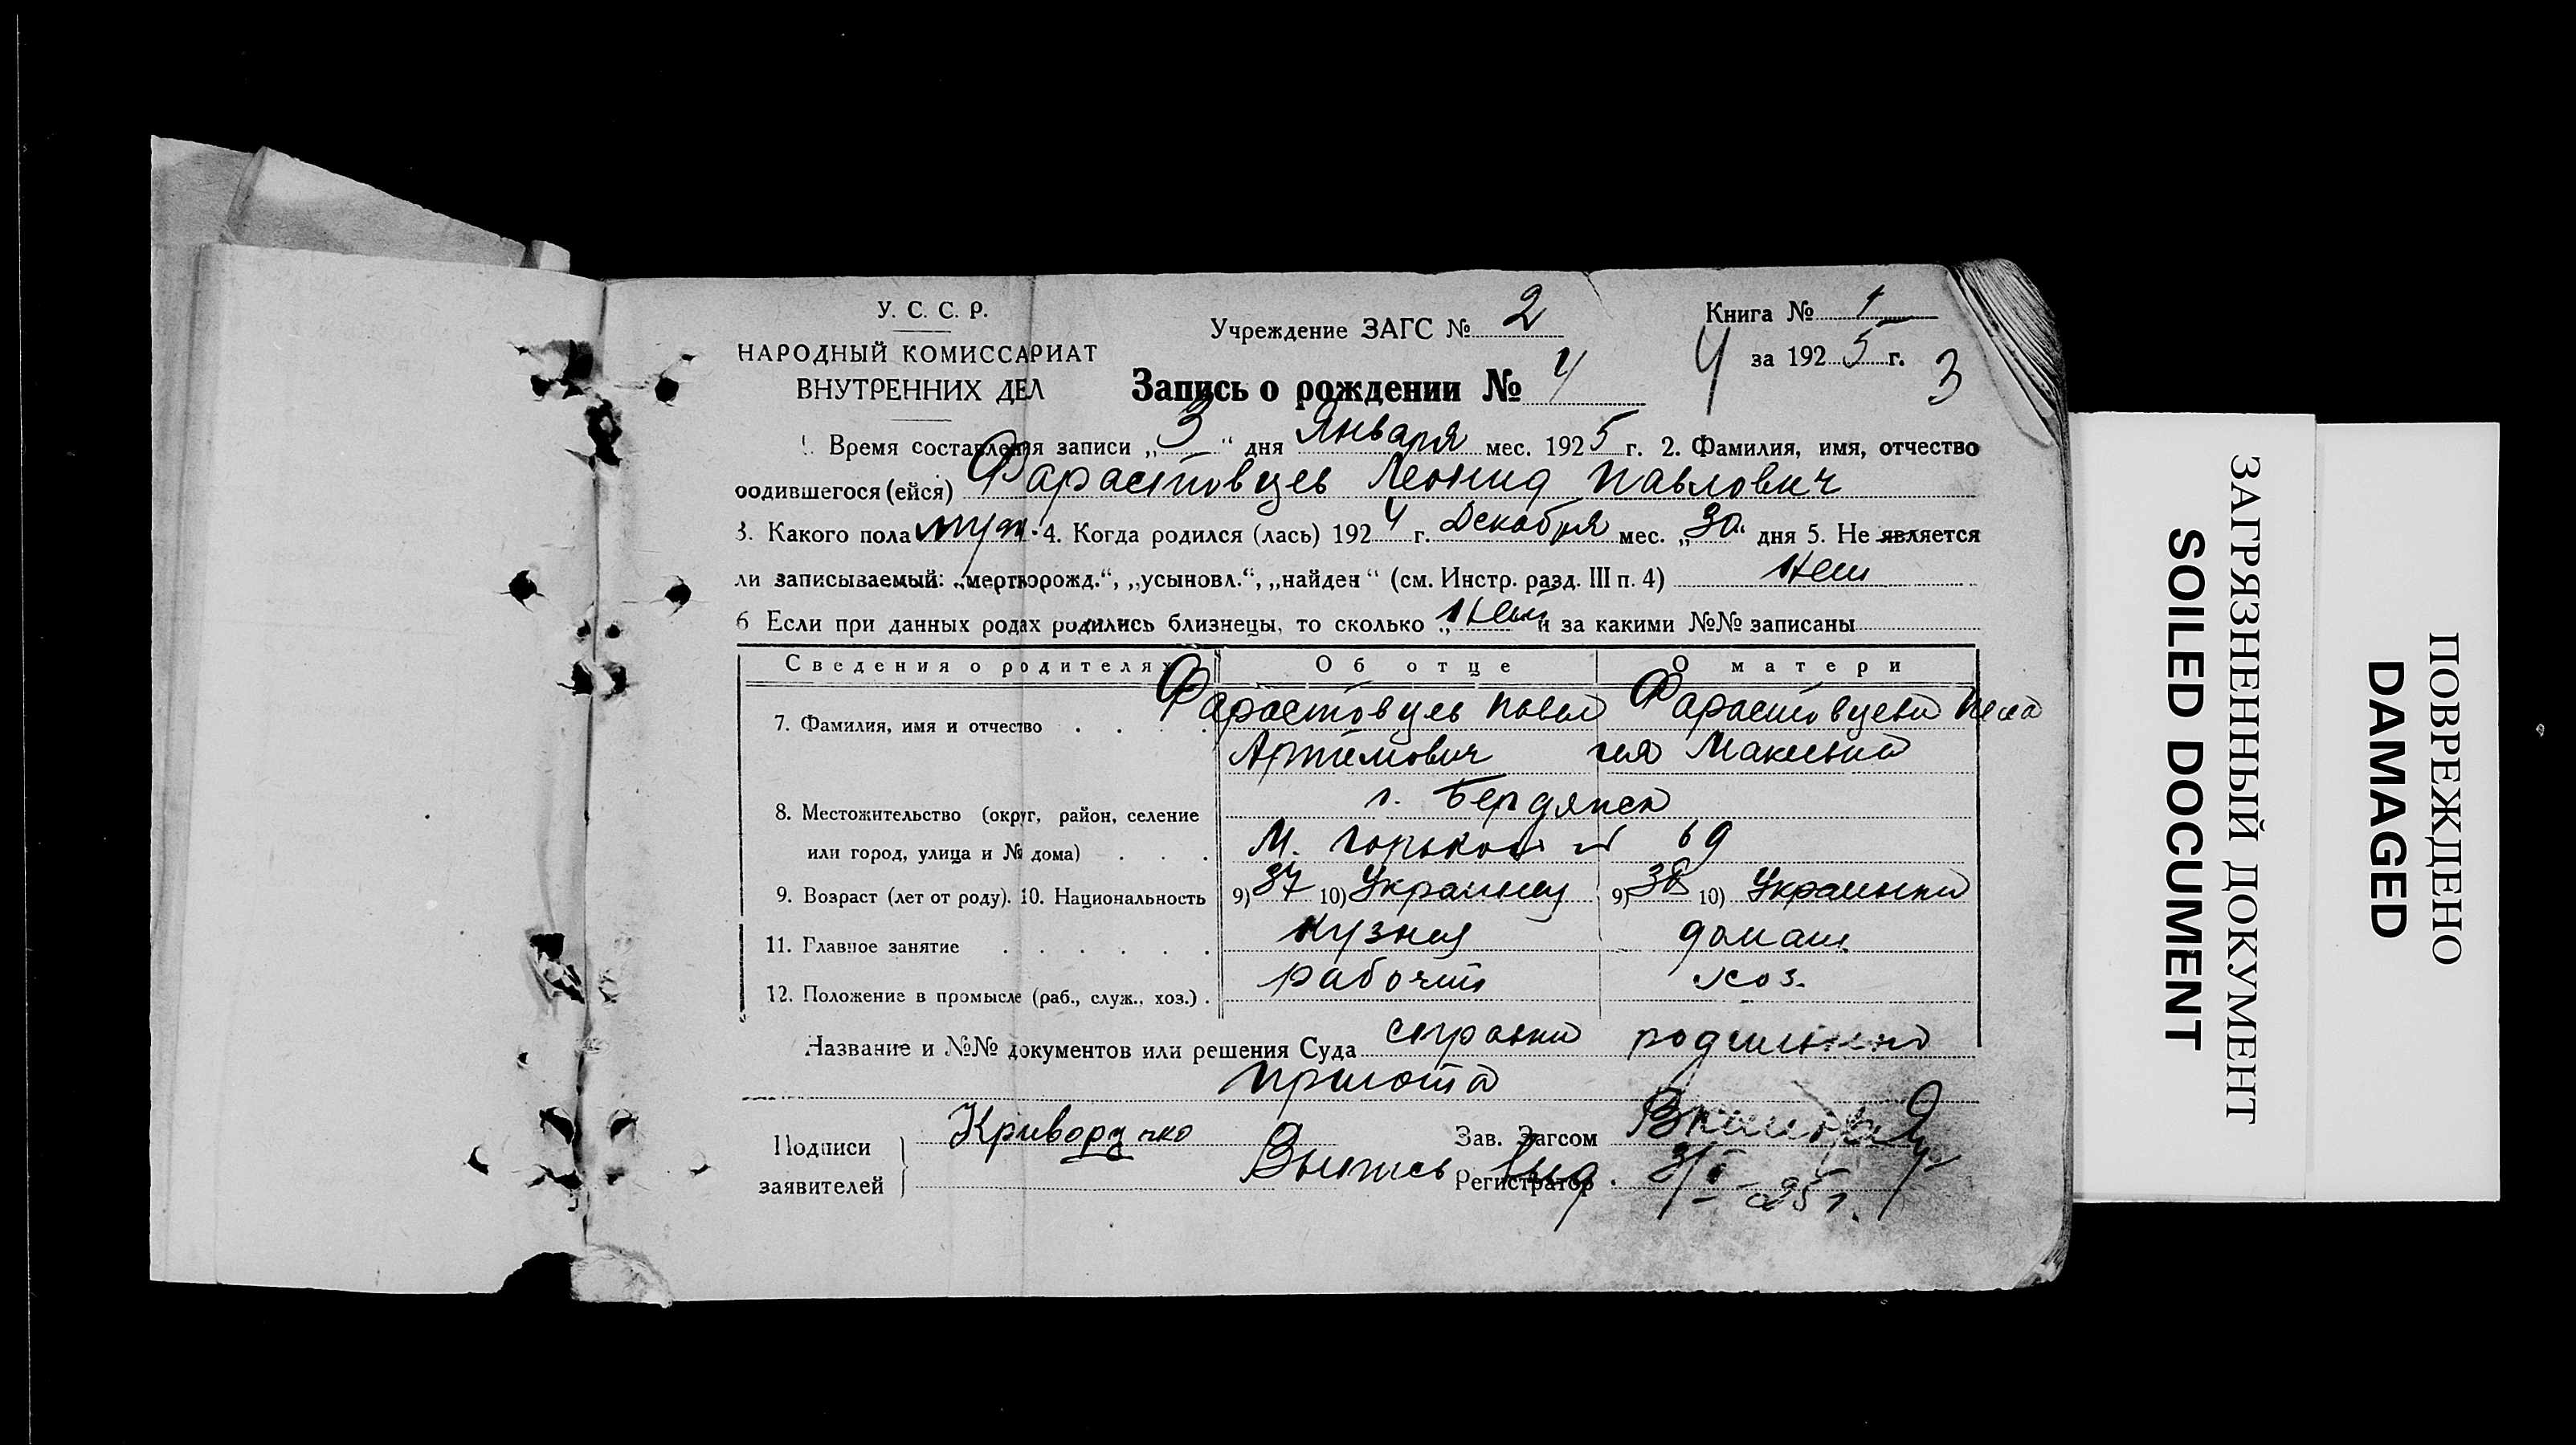 У. С. С. Р.
НАРОДНЫЙ КОМИССАРИАТ
ВНУТРЕННИХ ДЕЛ
Учреждение ЗАГС № 2
Книга № 1
4 за 1925 г. 3
Запись о рождении № 4
1. Время составления записи „3“ дня Января мес. 1925 г. 2. Фамилия, имя, отчество
родившегося (ейся) Фарастовцев Леонид Павлович
3. Какого пола муж. 4. Когда родился (лась) 1924 г. Декабря мес. „30“ дня 5. Не является
ли записываемый: „мерткорожд.“, „усыновл.“, „найден“ (см. Инстр. разд. III п. 4) Нет
6 Если при данных родах родились близнецы, то сколько „Нет“ и за какими №№ записаны
Сведения о родителях Об отце О матери
7. Фамилия, имя и отчество Фарастовцев Павел Фарастовцева
Артемович Максимов
8. Местожительство (округ, район, селение г. Бердянск
или город, улица и № дома) М. Горького № 69
9. Возраст (лет от роду). 10. Национальность 9) 37 10) Украинец 9) 38 10) Украинка
11. Главное занятие Кузнец домаш.
12. Положение в промысле (раб., служ., хоз.) рабочий хоз.
Название и №№ документов или решения Суда справка родильного
приюта
Подписи
заявителей
Зав. Загсом
Выпись выд. 3/I-25 г.
Регистратор
ЗАГРЯЗНЕННЫЙ ДОКУМЕНТ
SOILED DOCUMENT
ПОВРЕЖДЕНО
DAMAGED